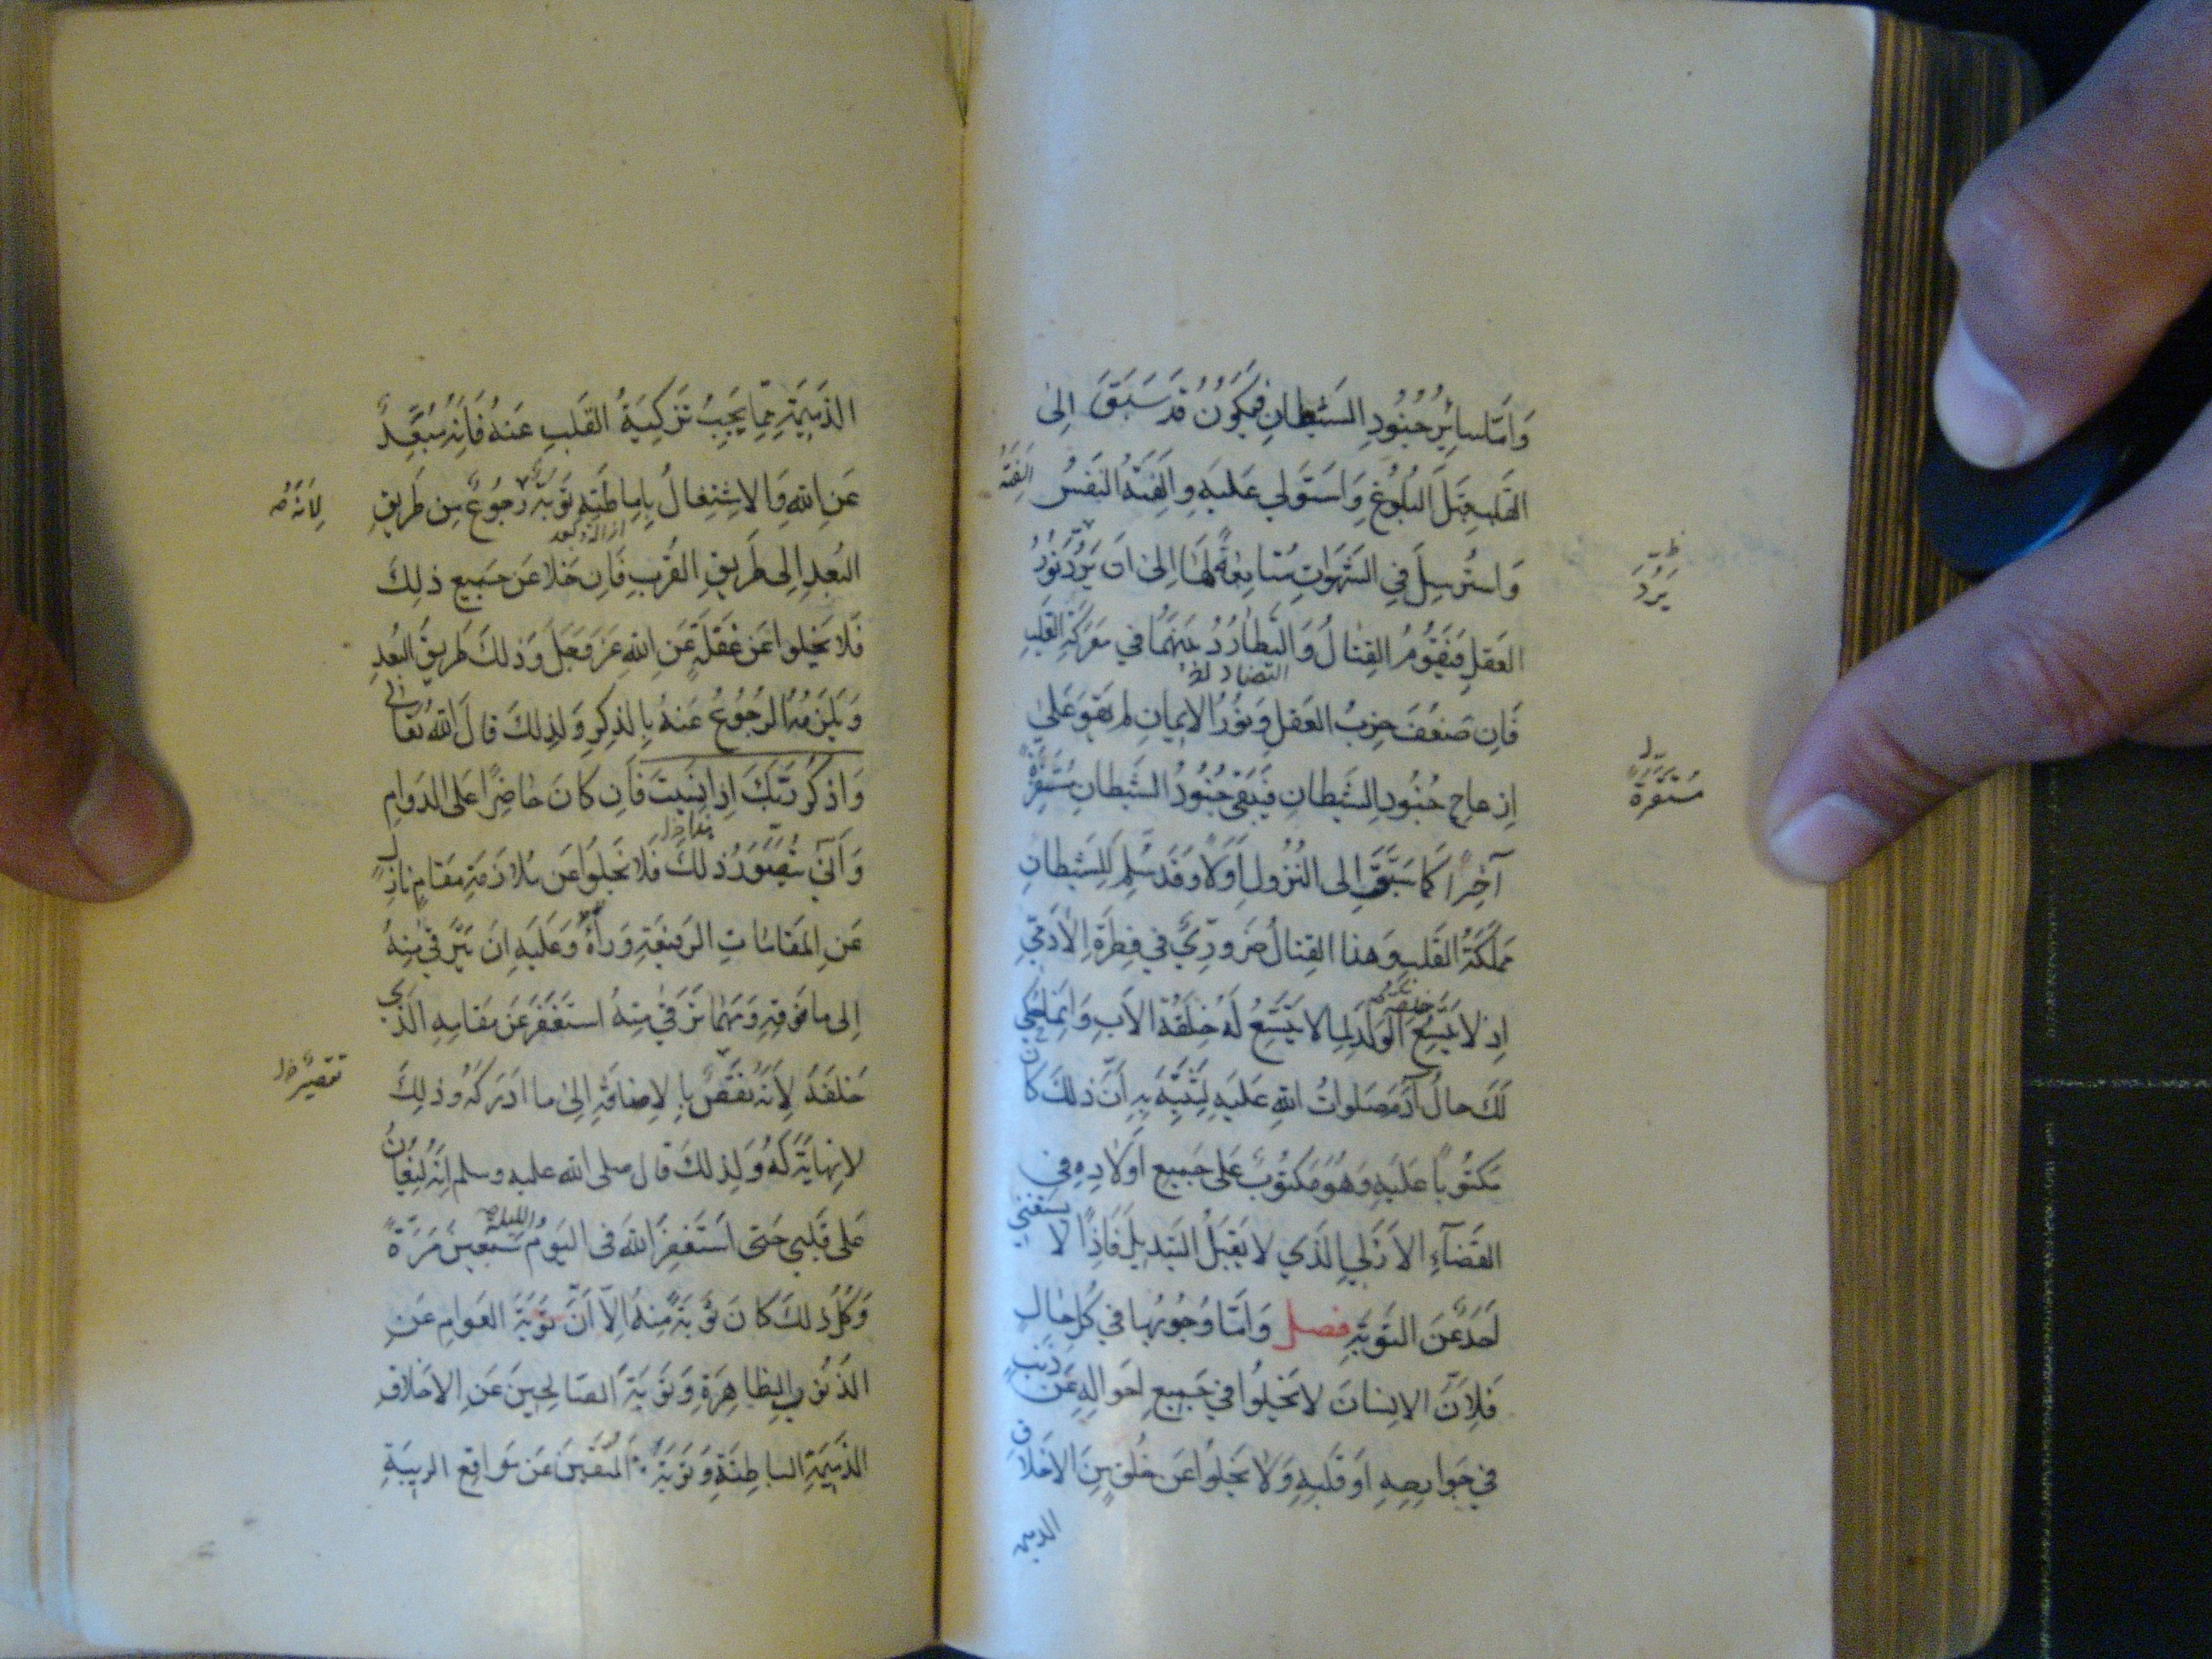 وَاَمَّا سائِرُ جُنُودِ الشَيْطانِ فَيَكُونُ قَد سَبَقَ اِلىٰ
القَلبِ قَبلَ البُلُوغِ وَاستَولي عَلَيهِ وَاَلِفَتهُ النَفسُ
اَلِفَتهُ
وَاستُرسِلَ فِي الشَهَواتِ مُتابِعةً لَهَا اِلىٰ اَن يَرُدَّ نُورُ
يَرُدَ
العَقلِ فَيَقُومُ القِتالُ وَالتَطارُدُ بَينَهُما في مَعرَكَةِ القَلبِ
التضاد
فَاِن ضَعُفَ حِزبُ العَقلِ وَنُورُ الاِيمانِ لم يَقوَ عَلىٰ
اِزعاجِ جُنُودِ الشَيطانِ فَيَبقىٰ جُنُودُ الشَيطانِ
مُستَقِرّةً
آخِراً كَما سَبَقَ اِلى النُزُولِ اَوَّلاً وَقَد سُلِّمَ لِلشَيطانِ
مَملَكَةُ القَلبِ وَهذا القِتالُ ضَرُورِيٌّ في فِطرَةِ الادَمِيّ
اِذ لا يَتَّسِعُ الوَلَدُ لِما لا يَتَّسِعُ لَهُ خِلقَةُ الاَبِ وَاِنَّما حُكِيَ
لَكَ حالُ آدَمَ صَلَواتُ اللهِ عَلَيهِ لِيُنَبَّهَ بِهِ اَنَّ ذلِكَ كانَ
مَكتُوباً عَلَيهِ وَهُوَ مَكتُوبٌ عَلى جَمِيعِ اَولادِهِ فِي
القَضآءِ الاَزَلِيِ الَذي لا يَقبَلُ التَبدِيلَ فَاِذاً لا يستغني
اَحَدٌ عَنِ التَوبَةِ فصل وَاَمّا وُجُوبُها في كُلِ حالٍ
فَلِاَنَّ الاِنسانَ لا يَخلُوا في جَمِيعِ احوالِهِ عَن ذَنبٍ
في جَوارِحِهِ اَو قَلبِهِ وَلا يَخلُوا عَن خُلقٍ مِنَ الاَخلاقِ
الذميمة
الذَمِيمَةِ مِمّا يَجِبُ تَزكِيَةُ القَلبِ عَنهُ فَاِنَّهُ مُبَعِّدٌ
عَنِ اللهِ وَالاِشتِغالُ بِاِماطَتِهِ تَوبَةٌ رُجُوعٌ مِن طَرِيقِ
لِاَنَّهُ
البُعدِ اِلى طَرِيقِ القُربِ فَاِن خَلا عَن جَمِيعِ ذلِكَ
فَلا يَخلوا عَن غَفلَةٍ عَنِ اللهِ عَزَ وَجَلَّ وَذلكَ طَرِيقُ البُعدِ
وَيَلزَمُهُ الرُجُوعُ عَنهُ بِالذِكرِ وَلِذلِكَ قالَ اللهُ تعالى
وَاذكُر رَبَّكَ اِذا نَسِيتَ فَاِن كانَ حاضِراً عَلى الدَوامِ
وَاَنّىٰ يُتَصَوَّرُ ذلكَ فَلا يَخلُوا عَن مُلازَمَةِ مَقامٍ نازِلٍ
عَنِ المَقاماتِ الرَفِيعَةِ وَرآءَهُ وَعَلَيهِ اَن يَتَرَقّى مِنهُ
اِلى ما فَوقَهِ وَمَهما تَرَقّىٰ مِنهُ استَغفَرَ عَن مَقامِهِ الَذي
خَلفَهُ لِاَنَّهُ نَقصٌ بِالاِضافَةِ اِلىٰ ما اَدرَكَهُ وَذلِكَ
تقصيرٌ
لا نِهايَةَ لَهُ وَلِذلكَ قال صلى الله عليه وسلم اِنَّهُ لَيُغانُ
عَلى قَلبِي حَتى اَستَغفِرَ اللهَ فى اليَومِ والليلة سَبعِينَ مَرّةً
وَكُلُّ ذلكَ كانَ تَوبَةً مِنهُ اِلّا اَنَّ تَوبَةَ العَوامِ عَنِ
الذُنُوبِ الظاهِرَةِ وَتَوبَةَ الصالِحِينَ عَنِ الاَخلاقِ
الذَمِيمَةِ الباطِنَةِ وَتَوبَةُ المُتَّقِينَ عَن مَواقِعِ الرِيبَةِ